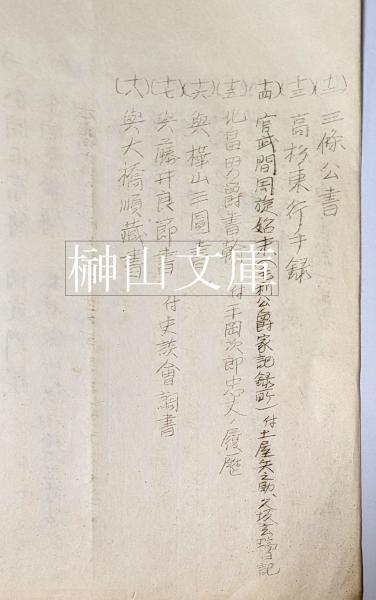 (十二) 三條公書
(十三) 高杉東行手録
(十四) 官武間周旋始末(毛利公爵家記録所)付土屋矢之助、久坂玄瑞日記
(十五) 北畠男爵書翰 付平岡次郎忠丈ノ履歴
(十六) 與樺山三圓書
(十七) 與藤井良節書 付史談會調書
(十八) 與大橋順藏書
榊山文庫